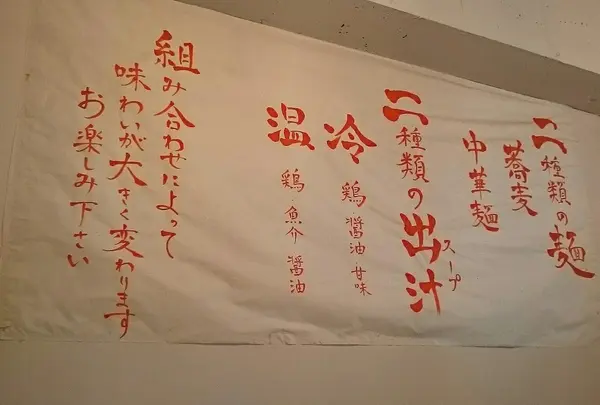 二種類の麺
蕎麦
中華麺
二種類の出汁
スープ
冷 鶏・醤油・甘味
温 鶏・魚介・醤油
組み合わせによって
味わいが大きく変わります
お楽しみ下さい